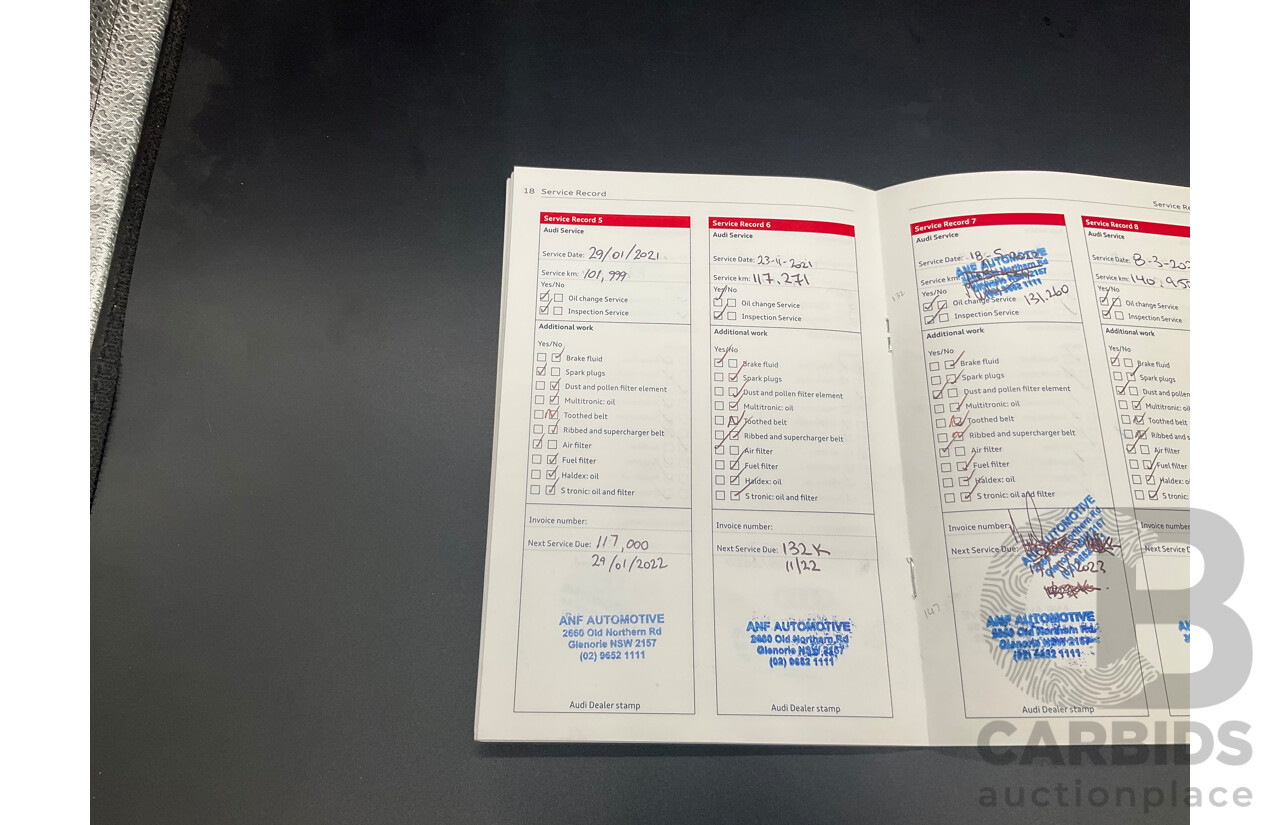 18 Service Record
Service Record 5
Audi Service
Service Date: 29/01/2021
Service km: 101,999
Yes/No
Oil change Service
Inspection Service
Additional work
Yes/No
Brake fluid
Spark plugs
Dust and pollen filter element
Multitronic: oil
Toothed belt
Ribbed and supercharger belt
Air filter
Fuel filter
Haldex: oil
S tronic: oil and filter
Invoice number:
Next Service Due: 117,000
29/01/2022
ANF AUTOMOTIVE
2660 Old Northern Rd
Glenorie NSW 2157
(02) 9652 1111
Audi Dealer stamp
Service Record 6
Audi Service
Service Date: 23-11-2021
Service km: 117,271
Yes/No
Oil change Service
Inspection Service
Additional work
Yes/No
Brake fluid
Spark plugs
Dust and pollen filter element
Multitronic: oil
Toothed belt
Ribbed and supercharger belt
Air filter
Fuel filter
Haldex: oil
S tronic: oil and filter
Invoice number:
Next Service Due: 132K
11/22
ANF AUTOMOTIVE
2660 Old Northern Rd
Glenorie NSW 2157
(02) 9652 1111
Audi Dealer stamp
132
147
Service Record 7
Audi Service
Service Date: 18-5
Service km:
ANF AUTOMOTIVE
Northern Rd
Glenorie NSW 2157
(02) 9652 1111
131,260
Yes/No
Oil change Service
Inspection Service
Additional work
Yes/No
Brake fluid
Spark plugs
Dust and pollen filter element
Multitronic: oil
Toothed belt
Ribbed and supercharger belt
Air filter
Fuel filter
Haldex: oil
S tronic: oil and filter
Invoice number
Next Service Due:
2023
ANF AUTOMOTIVE
Northern Rd
Glenorie NSW 2157
ANF AUTOMOTIVE
2660 Old Northern Rd
Glenorie NSW 2157
(02) 9652 1111
Audi Dealer stamp
Service Re
Service Record 8
Audi Service
Service Date: 8-3-202
Service km: 140,955
Yes/No
Oil change Service
Inspection Service
Additional work
Yes/No
Brake fluid
Spark plugs
Dust and pollen
Multitronic: oil
Toothed belt
Ribbed and s
Air filter
Fuel filter
Haldex: o
S tronic:
Invoice number
Next Service D
CARBIDS
auctionplace